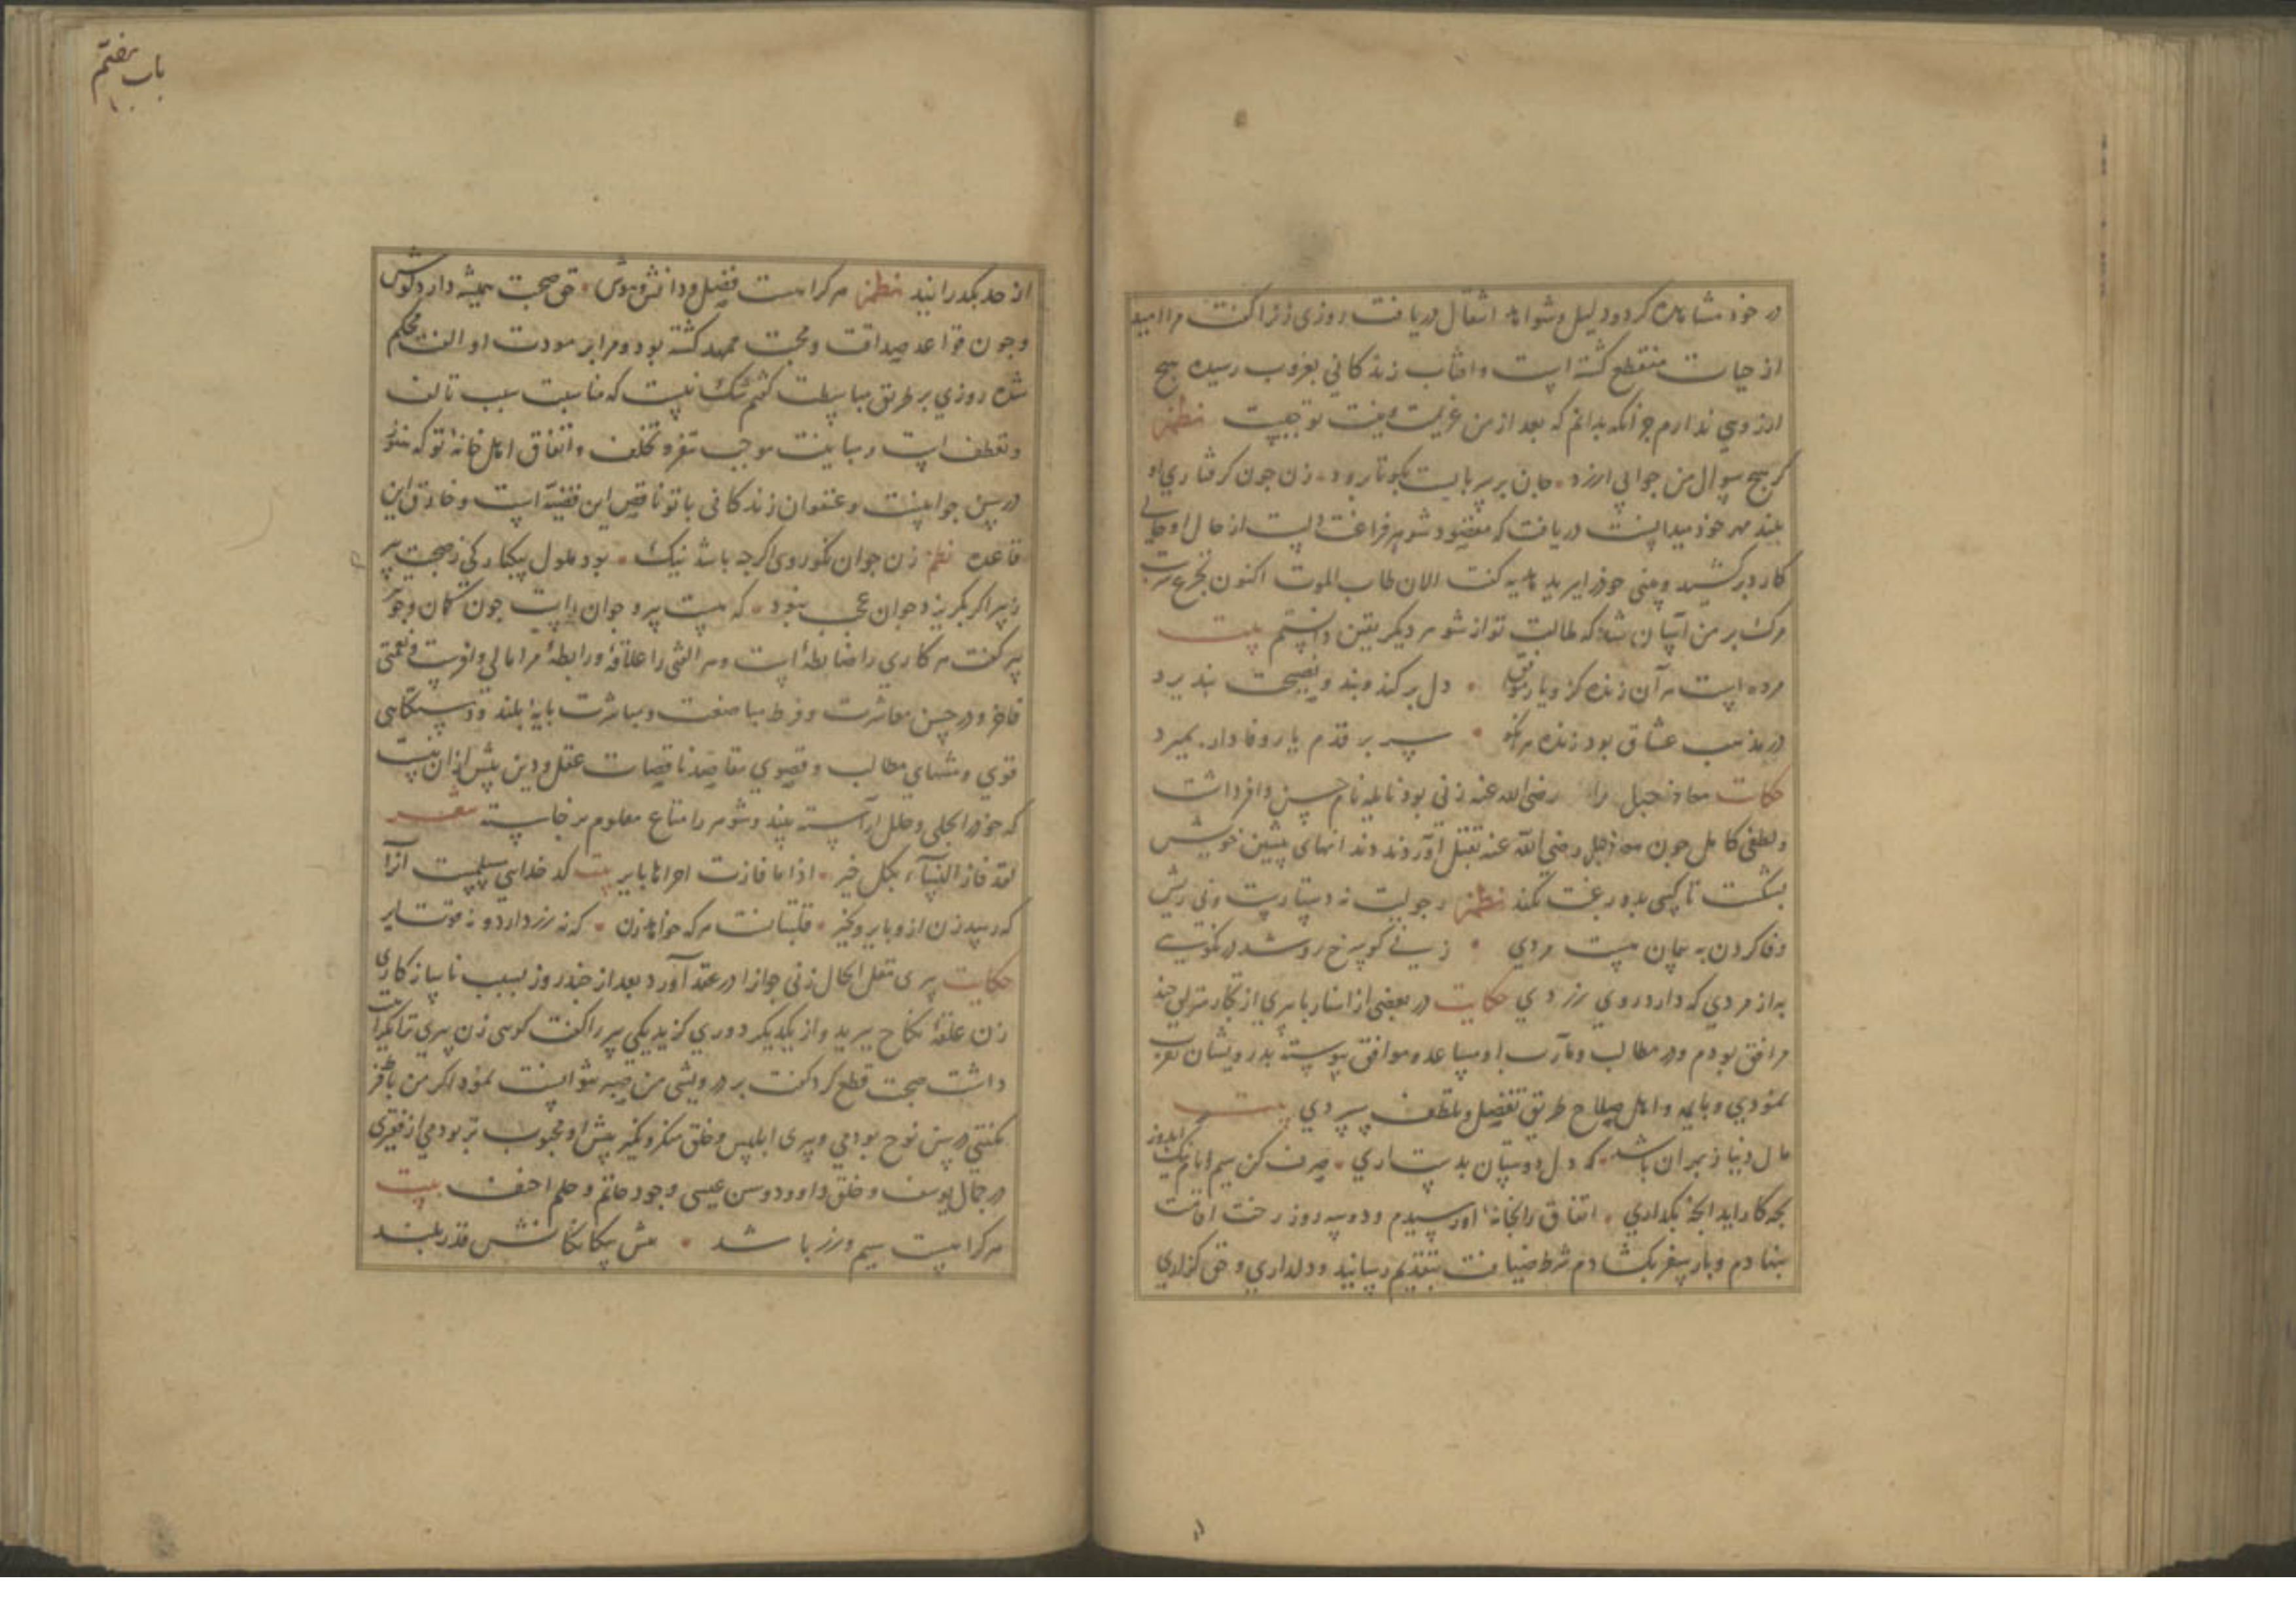 در خود مشاهده کرد و دلیل و شواهد انتقال دریافت روزی زنرا گفت مرا امید
از حیات منقطع گشته است و افتاب زندکانی بغروب رسیده هیچ
ارزوی ندارم جز انکه بدانم که بعد از من عزیمت و نیت تو چیست نظم
کر هیچ سوال من جوابی ارزد جان بر سر بایت بکو تا برود زن جون کرفتاری او
ببند مهر خود میدانست دریافت که مقصود شوهر فراغت است از حال او حالی
کارد برکشید و بینی خود را ببرید کفت الان طاب الموت اکنون تجرع شربت
مرک بر من آسان شد که طالبت تو از شوهر دیکر یقین دانستم بیت
مرده است هر آن زنده کز و یار موافق دل برکند و بند و نصیحت نپذیرد
در مذهب عشاق بود زنده هر انکو سر بر قدم یار وفادار بمیرد
حکایت معاذ جبل را رضی الله عنه زنی بود نایله نام حسن وافر داشت
و لطفی کامل جون معاذ جبل رضی الله عنه بقتل آوردند دندانهای پیشین خویش
بشکست تا کسی بدو رغبت نکند نظم رجولیت نه دستارست و نی ریش
وفا کردن به پیمان هست مردی زنی کو سرخ رو شد در نکویی
به از مردی که دارد روی زردی حکایت در بعضی از اسفار با پیری از تجار متولی چند
مرافق بودم و در مطالب و مآرب با او مساعد و موافق پیوسته بدرویشان تقرب
نمودی و با ایمه و اهل صلاح طریق تفضل و تلطف سپردی بیت
مال دنیا ز بهر ان باشد که دل دوستان بدست اری صرف کن سیم و نام نیک اندوز
بچه کار اید انچه بگذاری اتفاق را بخانه او رسیدم و دو سه روز رخت اقامت
بنهادم و بار سفر بکشادم شرط ضیافت بتقدیم رسانید و دلداری و حق کزاری
باب هفتم
از حد بگذرانید نظم هر کرا هست فضل و دانش و هوش حق صحبت همیشه دارد کوش
و جون قواعد صداقت و محبت ممهد کشته بود و مرا بر مودت او الفت محکم
شده روزی بر طریق مباسطت کفتم شک نیست که مناسبت سبب تالف
و تعطف است و مباینت موجب تنفر و تخلف و اتفاق اهل خانه تو که هنوز
در سن جوانیست و عنفوان زندکانی با تو ناقض این قضیه است و خارق این
قاعده نظم زن جوان نکوروی اکرچه باشد نیک بود ملول بیکبارکی ز صحبت پیر
ز پیر اکر بکریزد جوان عجب نبود که هست پیر و جوان راست جون کمان و جو تیر
پیر کفت هر کاری را ضابطه است و هر الفتی را علاقه و رابطه مرا مالی وافرست و نعمتی
فاخر و در حسن معاشرت و فرط مباضعت و مباشرت بایه بلند و دستکاهی
قوی و منتهای مطالب و قصوی مقاصد ناقصات عقل و دین بیش از ان نیست
که خود را بحلی و حلل آراسته بیند و شوهر را متاع معلوم برخاسته شعر
لقد فاز النسآء بکل خیر اذا ما فازت احراها بایر بیت کدخدایی مسلمست انرا
که رسد زن ازو بایر و بخیر قلتبانست هر که خواهد زن که نه زر دارد و نه قوت ایر
حکایت پیری مقل الحال زنی جوانرا در عقد آورد بعد از چند روز بسبب ناسازکاری
زن علقه نکاح ببرید و از یکدیکر دوری کزید یکی پیر را کفت کوی زن پیری ترا کراهیت
داشت صحبت قطع کرد کفت بر درویشی من صبر نتوانست نمود اکر من با فر
مکنتی در سن نوح بودمی و پیری ابلیس و خلق منکر و نکیر پیش او محبوب تر بودمی از فقیری
در جمال یوسف و خلق داوود و سن عیسی و جود حاتم و حلم احنف بیت
هر کرا هست سیم و زر باشد پیش بیکانکانش قدر بلند